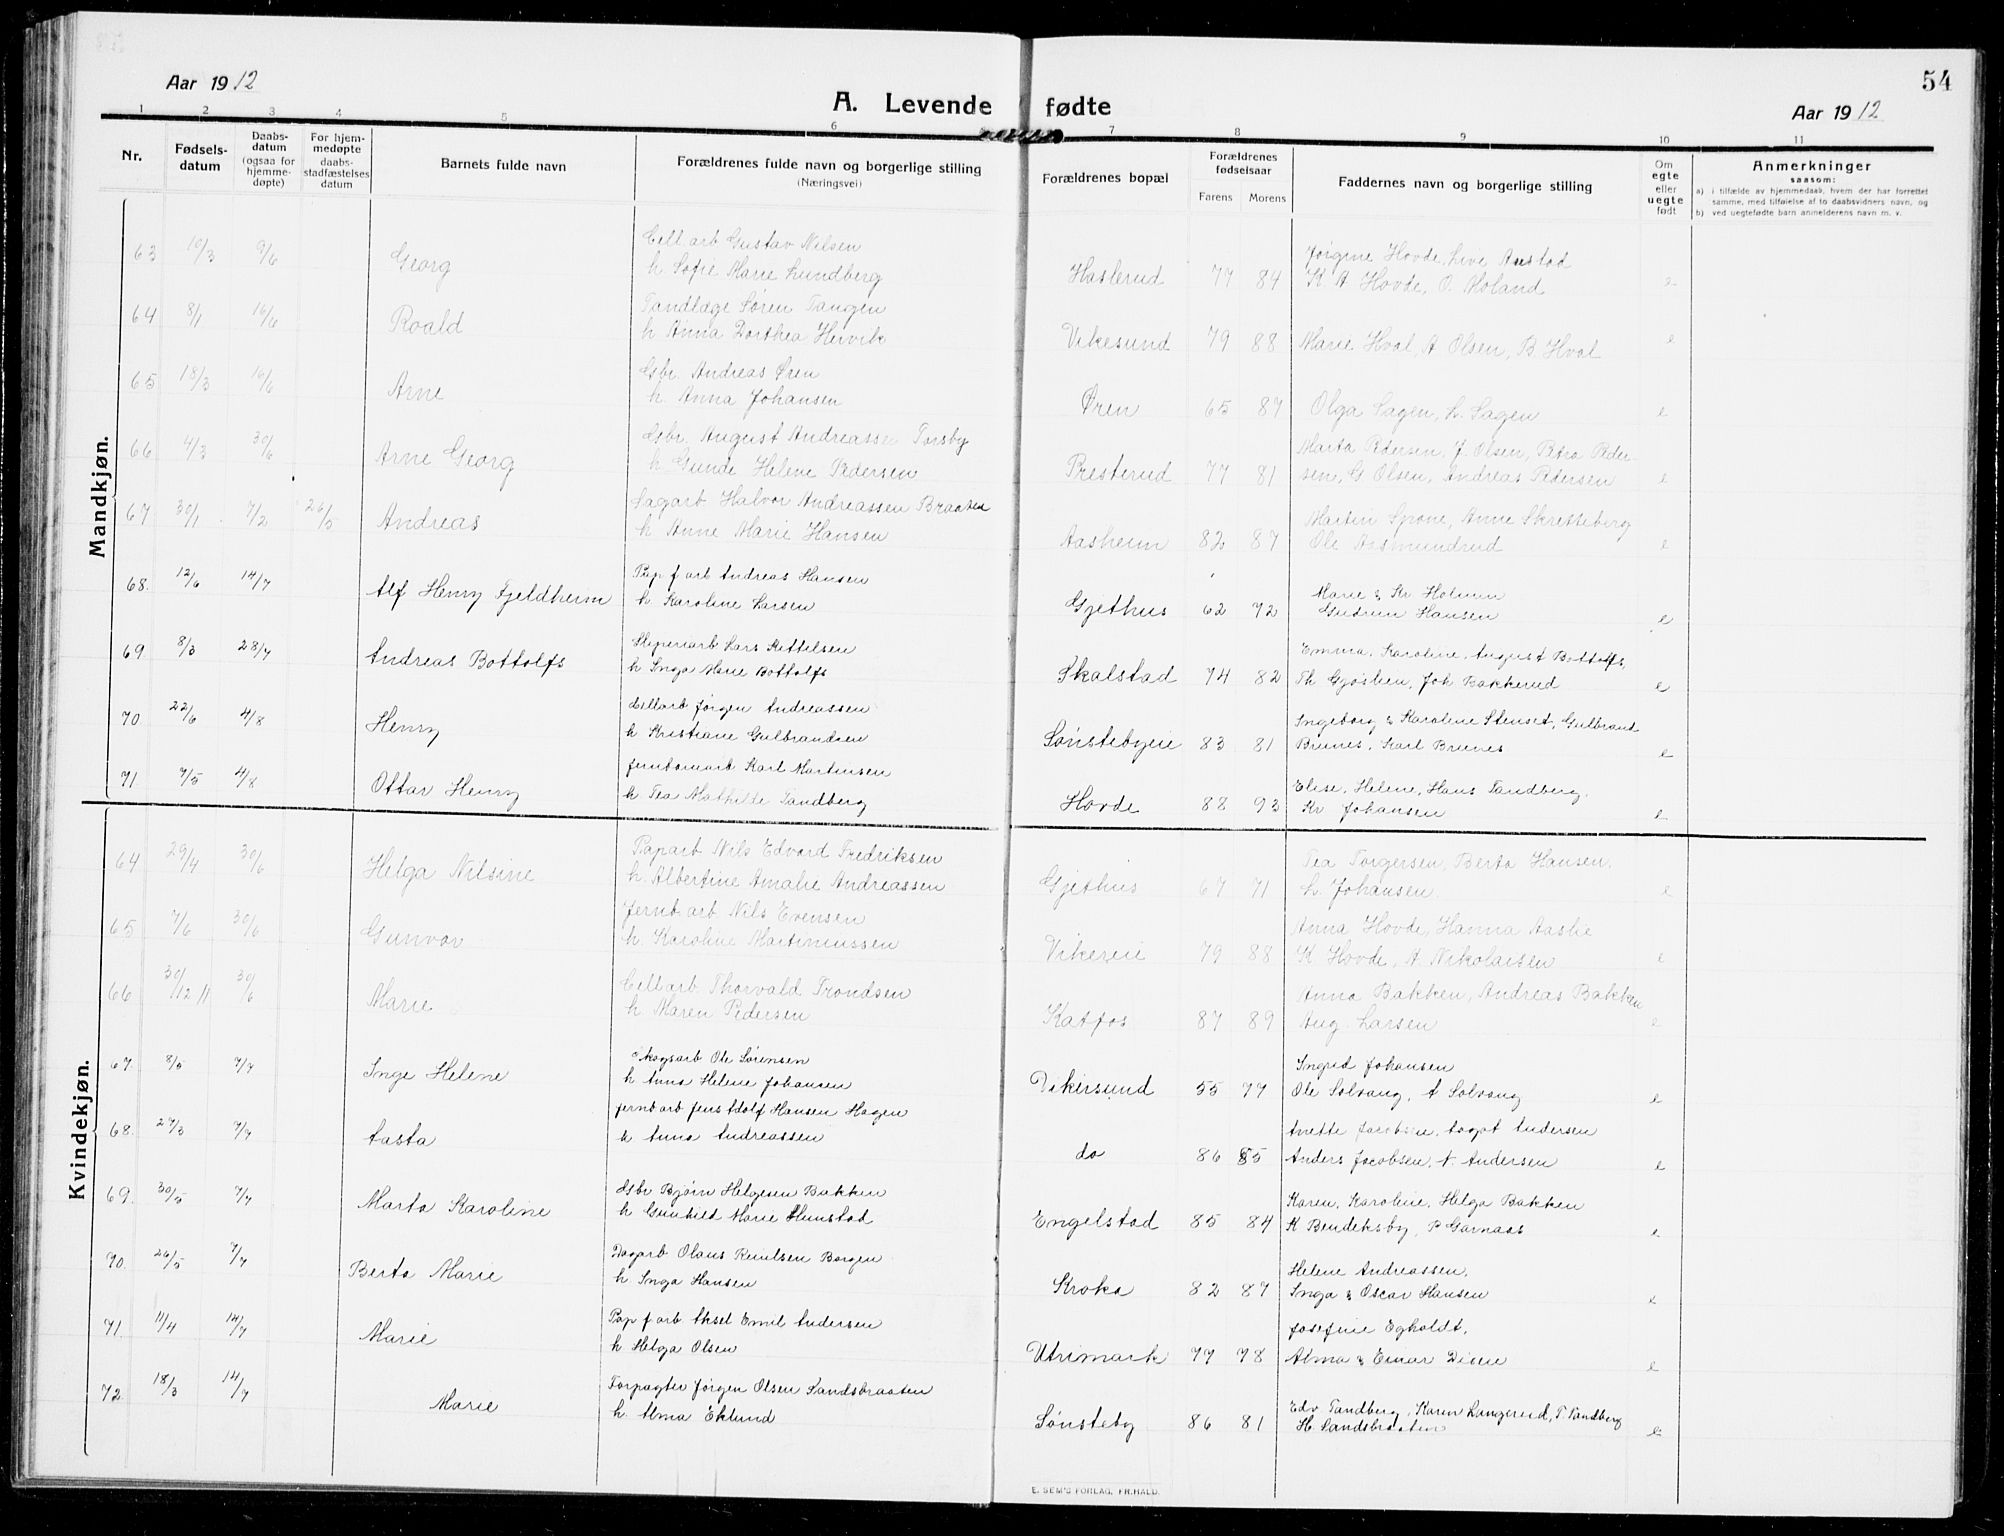 54
Aar 1912
A. Levende fødte
Aar 1912
1 2 3 4 5 6 7 8 9 10 11
Nr.
Fødsels-
datum
Daabs-
datum
(ogsaa for
hjemme-
døpte)
For hjem-
medøpte
daabs-
stadfæstelses
datum
Barnets fulde navn
Forældrenes fulde navn og borgerlige stilling
(Næringsvei)
Forældrenes bopæl
Forældrenes
fødselsaar
Farens Morens
Faddernes navn og borgerlige stilling
Om
egte
eller
uegte
født
Anmerkninger
saasom:
a) i tilfælde av hjemmedaab, hvem der har forrettet
samme, med tilføielse av to daabsvidners navn, og
b) ved uegtefødte barn anmelderens navn m. v.
Mandkjøn.
63 10/3 9/6 Georg
Cell arb Gustav Nilsen
h Sofie Marie Lundberg
Haslerud 77 84
Jørgine Hovde, Live Austad
K A Hovde, O. Moland e
64 8/1 16/6 Roald
Tandlæge Søren Tangen
h Anna Dorthea Hervik
Vikesund 79 88 Marie Hval, A Olsen, B. Hval e
65 18/3 16/6 Arne
Gbr. Andreas Øren
h. Anna Johansen
Øren 65 87 Olga Sagen, h. Sagen e
66 4/3 30/6 Arne Georg
Gbr. August Andreassen Torsby
h Gunde Helene Pedersen
Presterud 77 81
Marta Pedersen, J. Olsen, Petra Peder-
sen, G. Olsen, Andreas Pedersen e
67 30/1 7/2 26/5 Andreas
Sagarb Halvor Andreassen Braaten
h Anne Marie Hansen
Aasheim 82 87
Martin Spone, Anne Skretteberg
Ole Aasmundrud e
68. 12/6 14/7 Alf Henry Fjeldheim
Pap f arb Andreas Hansen
h Karoline Larsen
Gjethus 62 72
Marie & Kr Holmen
Gudrun Hansen e
69. 8/3 28/7 Andreas Bottolfs
Sliperiarb Lars Kittelsen
h Inga Marie Bottolfs
Skalstad 74 82
Emma, Karoline, August Bottolfs,
Th Gjøslien, Joh Bakkerud e
70 22/6 4/8 Henry
Cellarb Jørgen Andreassen
h Kristiane Gulbrandsen
Sønstebyeie 83 81
Ingeborg & Karoline Stenset, Gulbrand
Brunes, Karl Brunes e
71 7/5 4/8 Ottar Henry
Jernbanearb Karl Martinsen
h Tea Mathilde Tandberg
Hovde 88 93
Elise, Helene, Hans Tandberg.
Kr Johansen e
Kvindekjøn.
64 29/4 30/6 Helga Nilsine
Paparb Nils Edvard Fredriksen
h. Albertine Amalie Andreassen
Gjethus 67 71
Tea Torgersen, Berta Hansen,
h. Johansen e
65 7/6 30/6 Gunvor
Jernb. arb Nils Evensen
h. Karoline Martinussen
Vikereie 79 88
Anna Hovde, Hanna Aaslie
K Hovde, A. Nikolaisen e
66 30/12 11 30/6 Marie
Cellarb Thorvald Trondsen
h Maren Pedersen
Katfos 87 89
Anna Bakken, Andreas Bakken
Aug. Larsen e
67. 8/5 7/7 Inge Helene
Skogsarb Ole Sørensen
h Anna Helene Johansen
Vikersund 55 77
Ingrid Johansen
Ole Solvang, A Solvang e
68. 27/3 7/7 Aasta
Jernb arb Jens Adolf Hansen Hagen
h Anna Andreassen
do 86 85
Anette Jacobsen, Aagot Andersen
Anders Jacobsen, A. Andersen e
69 30/5 7/7 Marta Karoline
Gbr Bjørn Helgesen Bakken
h Gunhild Marie Hunstad
Engelstad 85 84
Karen, Karoline, Helga Bakken
K Bendeksby, P Garnaas e
70. 26/5 7/7 Berta Marie
Dagarb Olaus Knutsen Borgen
h Inga Hansen
Kroka 82 87
Helene Andreassen,
Inga & Oscar Hansen e
71. 11/4 14/7 Marie
Pap f arb Aksel Emil Andersen
h Helga Olsen
Utrimark 77 78
Josefine Egholdt,
Alma & Einar Disen e
72. 18/3 14/7 Marie
Forpagter Jørgen Olsen Sandsbraaten
h. Alma Eklund
Sønsteby 86 81
Edv Tandberg, Karen Langerud, T. Tandberg
H. Sandsbraaten e
E. SEM'S FORLAG, FR.HALD.